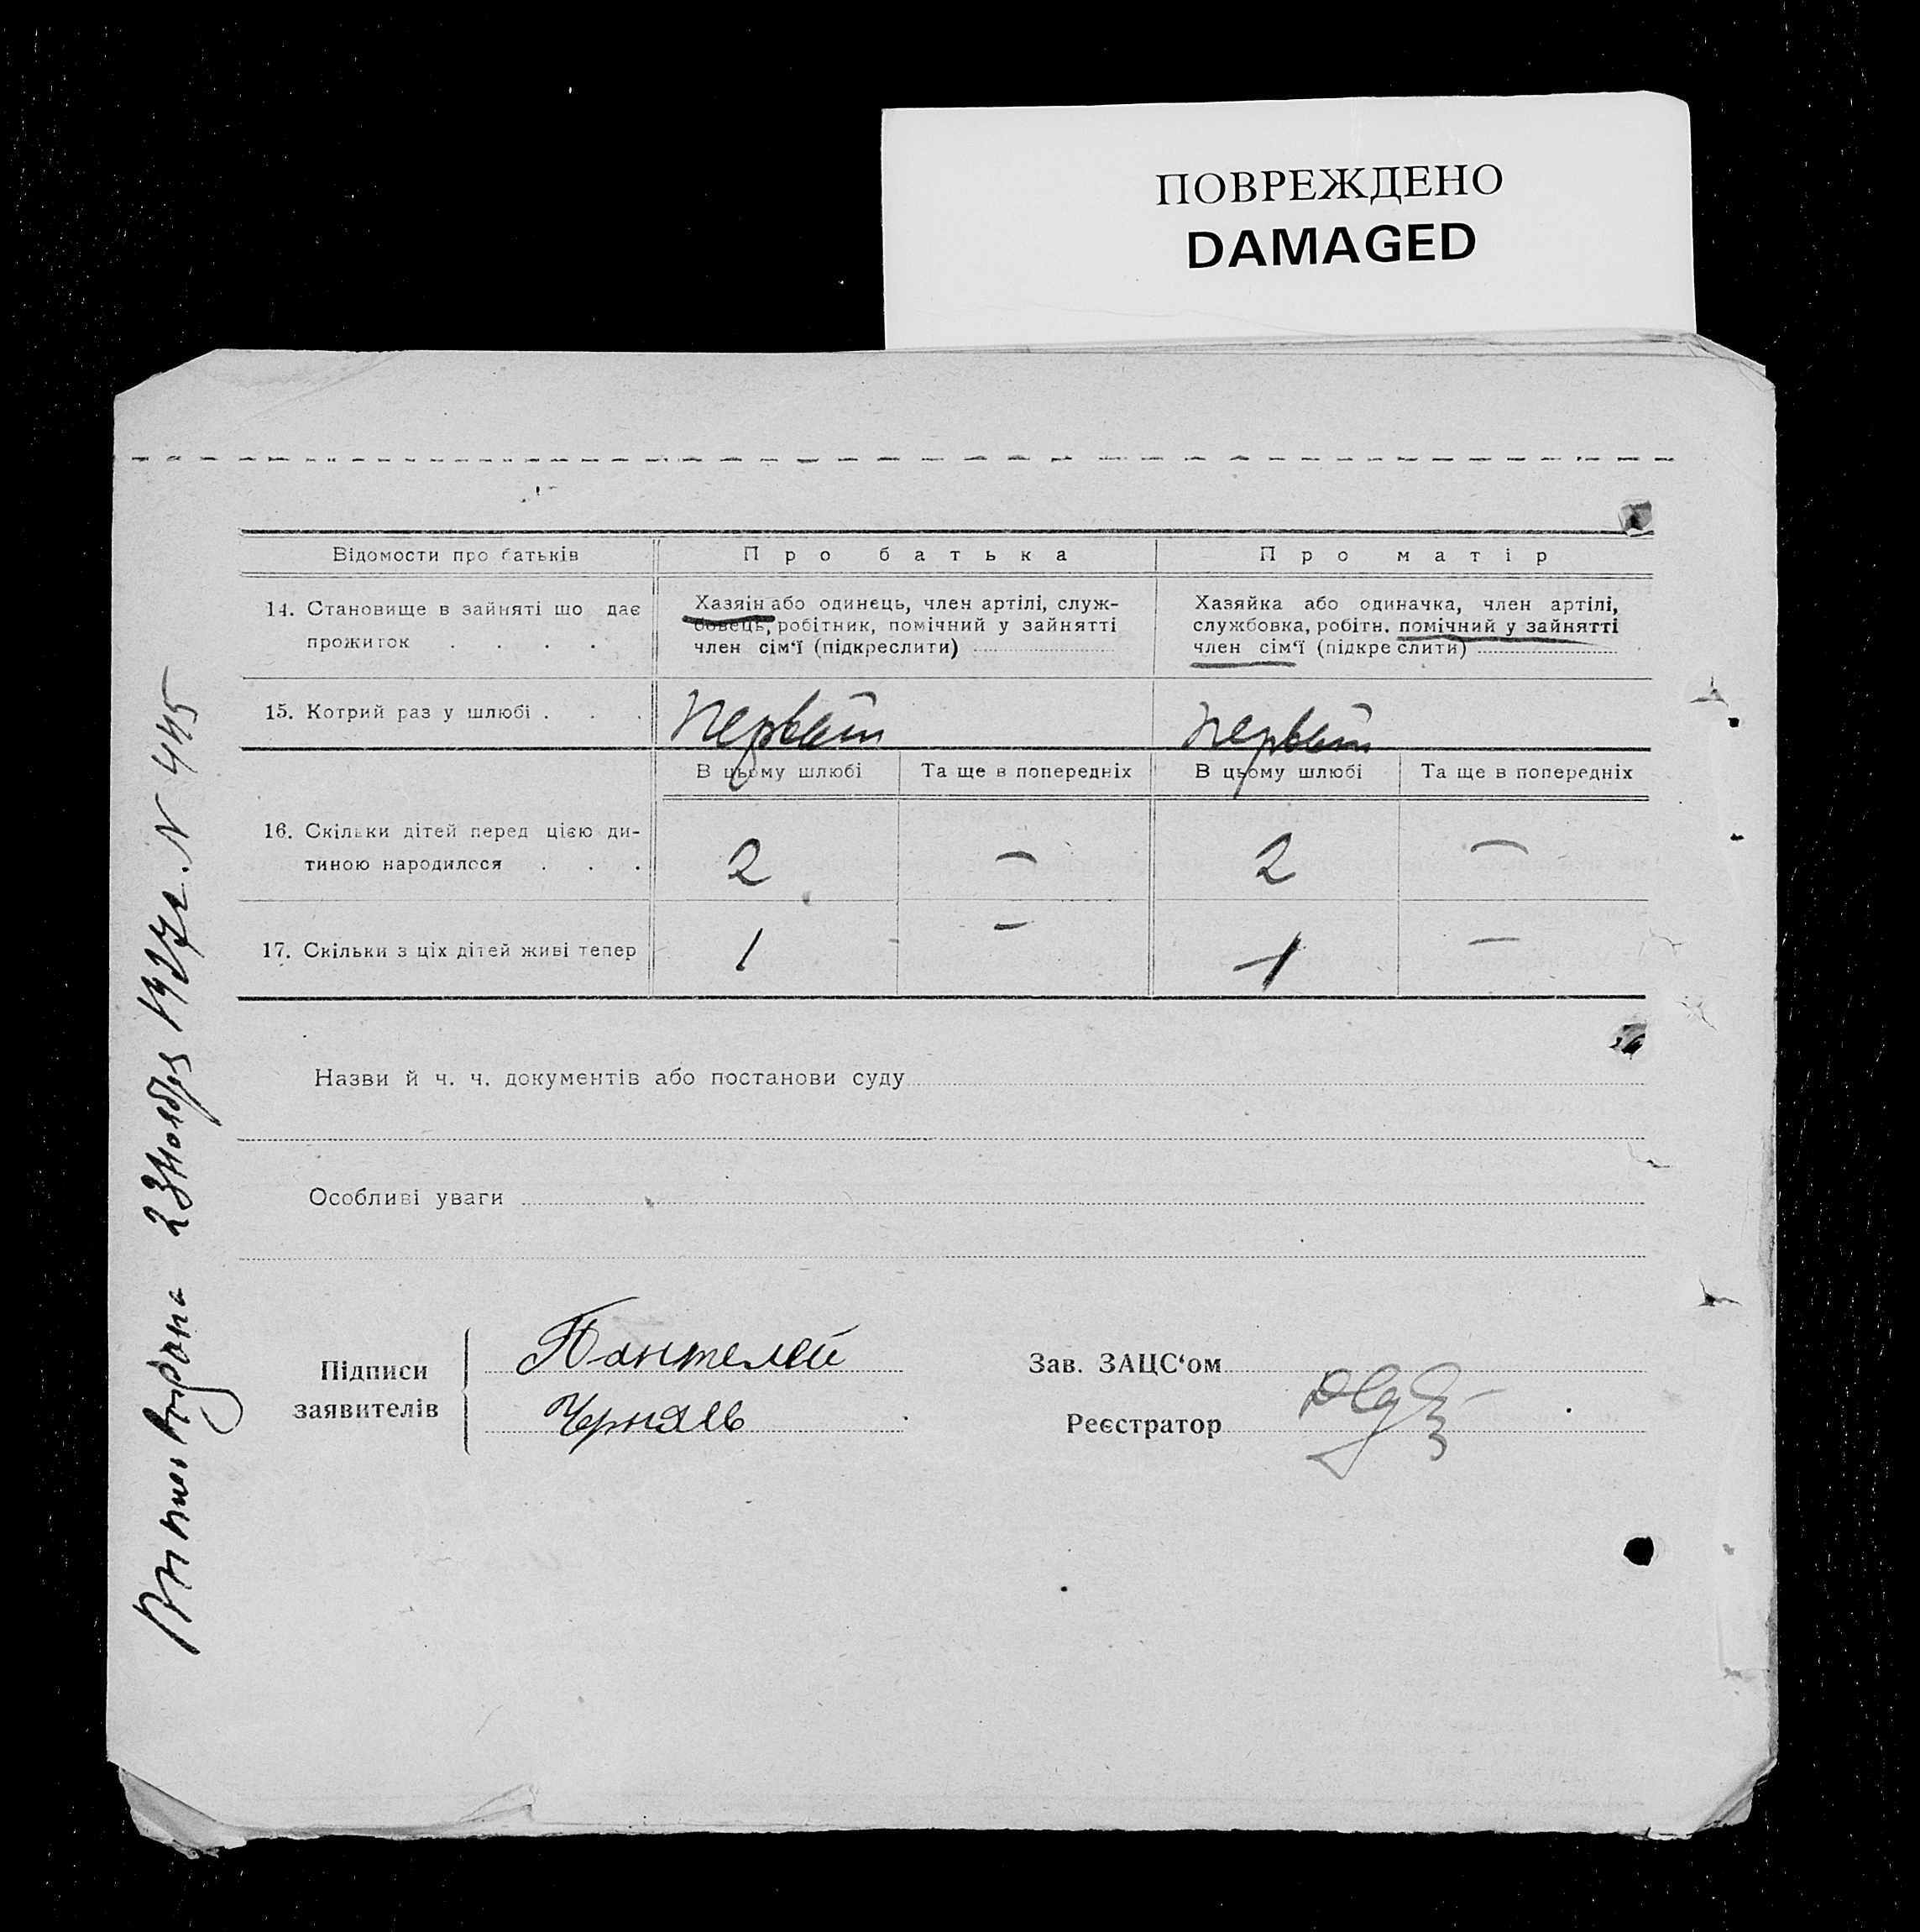 ПОВРЕЖДЕНО
DAMAGED
Відомости про батьків
Про батька
Про матір
14. Становище в зайняті що дає
прожиток . . . .
Хазяін або одинець, член артілі, служ-
бовець, робітник, помічний у зайнятті
член сім‘ї (підкреслити)
Хазяйка або одиначка, член артілі,
службовка, робітн. помічний у зайнятті
член сім‘ї (підкреслити)
15. Котрий раз у шлюбі . . .
первый
первый
В цьому шлюбі
Та ще в попередніх
В цьому шлюбі
Та ще в попередніх
16. Скільки дітей перед цією ди-
тиною народилося . . .
2
—
2
—
17. Скільки з ціх дітей живі тепер
1
—
1
—
Назви й ч. ч. документів або постанови суду
Особливі уваги
Підписи
заявителів
Пантелей
Черняев
Зав. ЗАЦС‘ом
Реєстратор
23 Ноября 1927 г. N 445